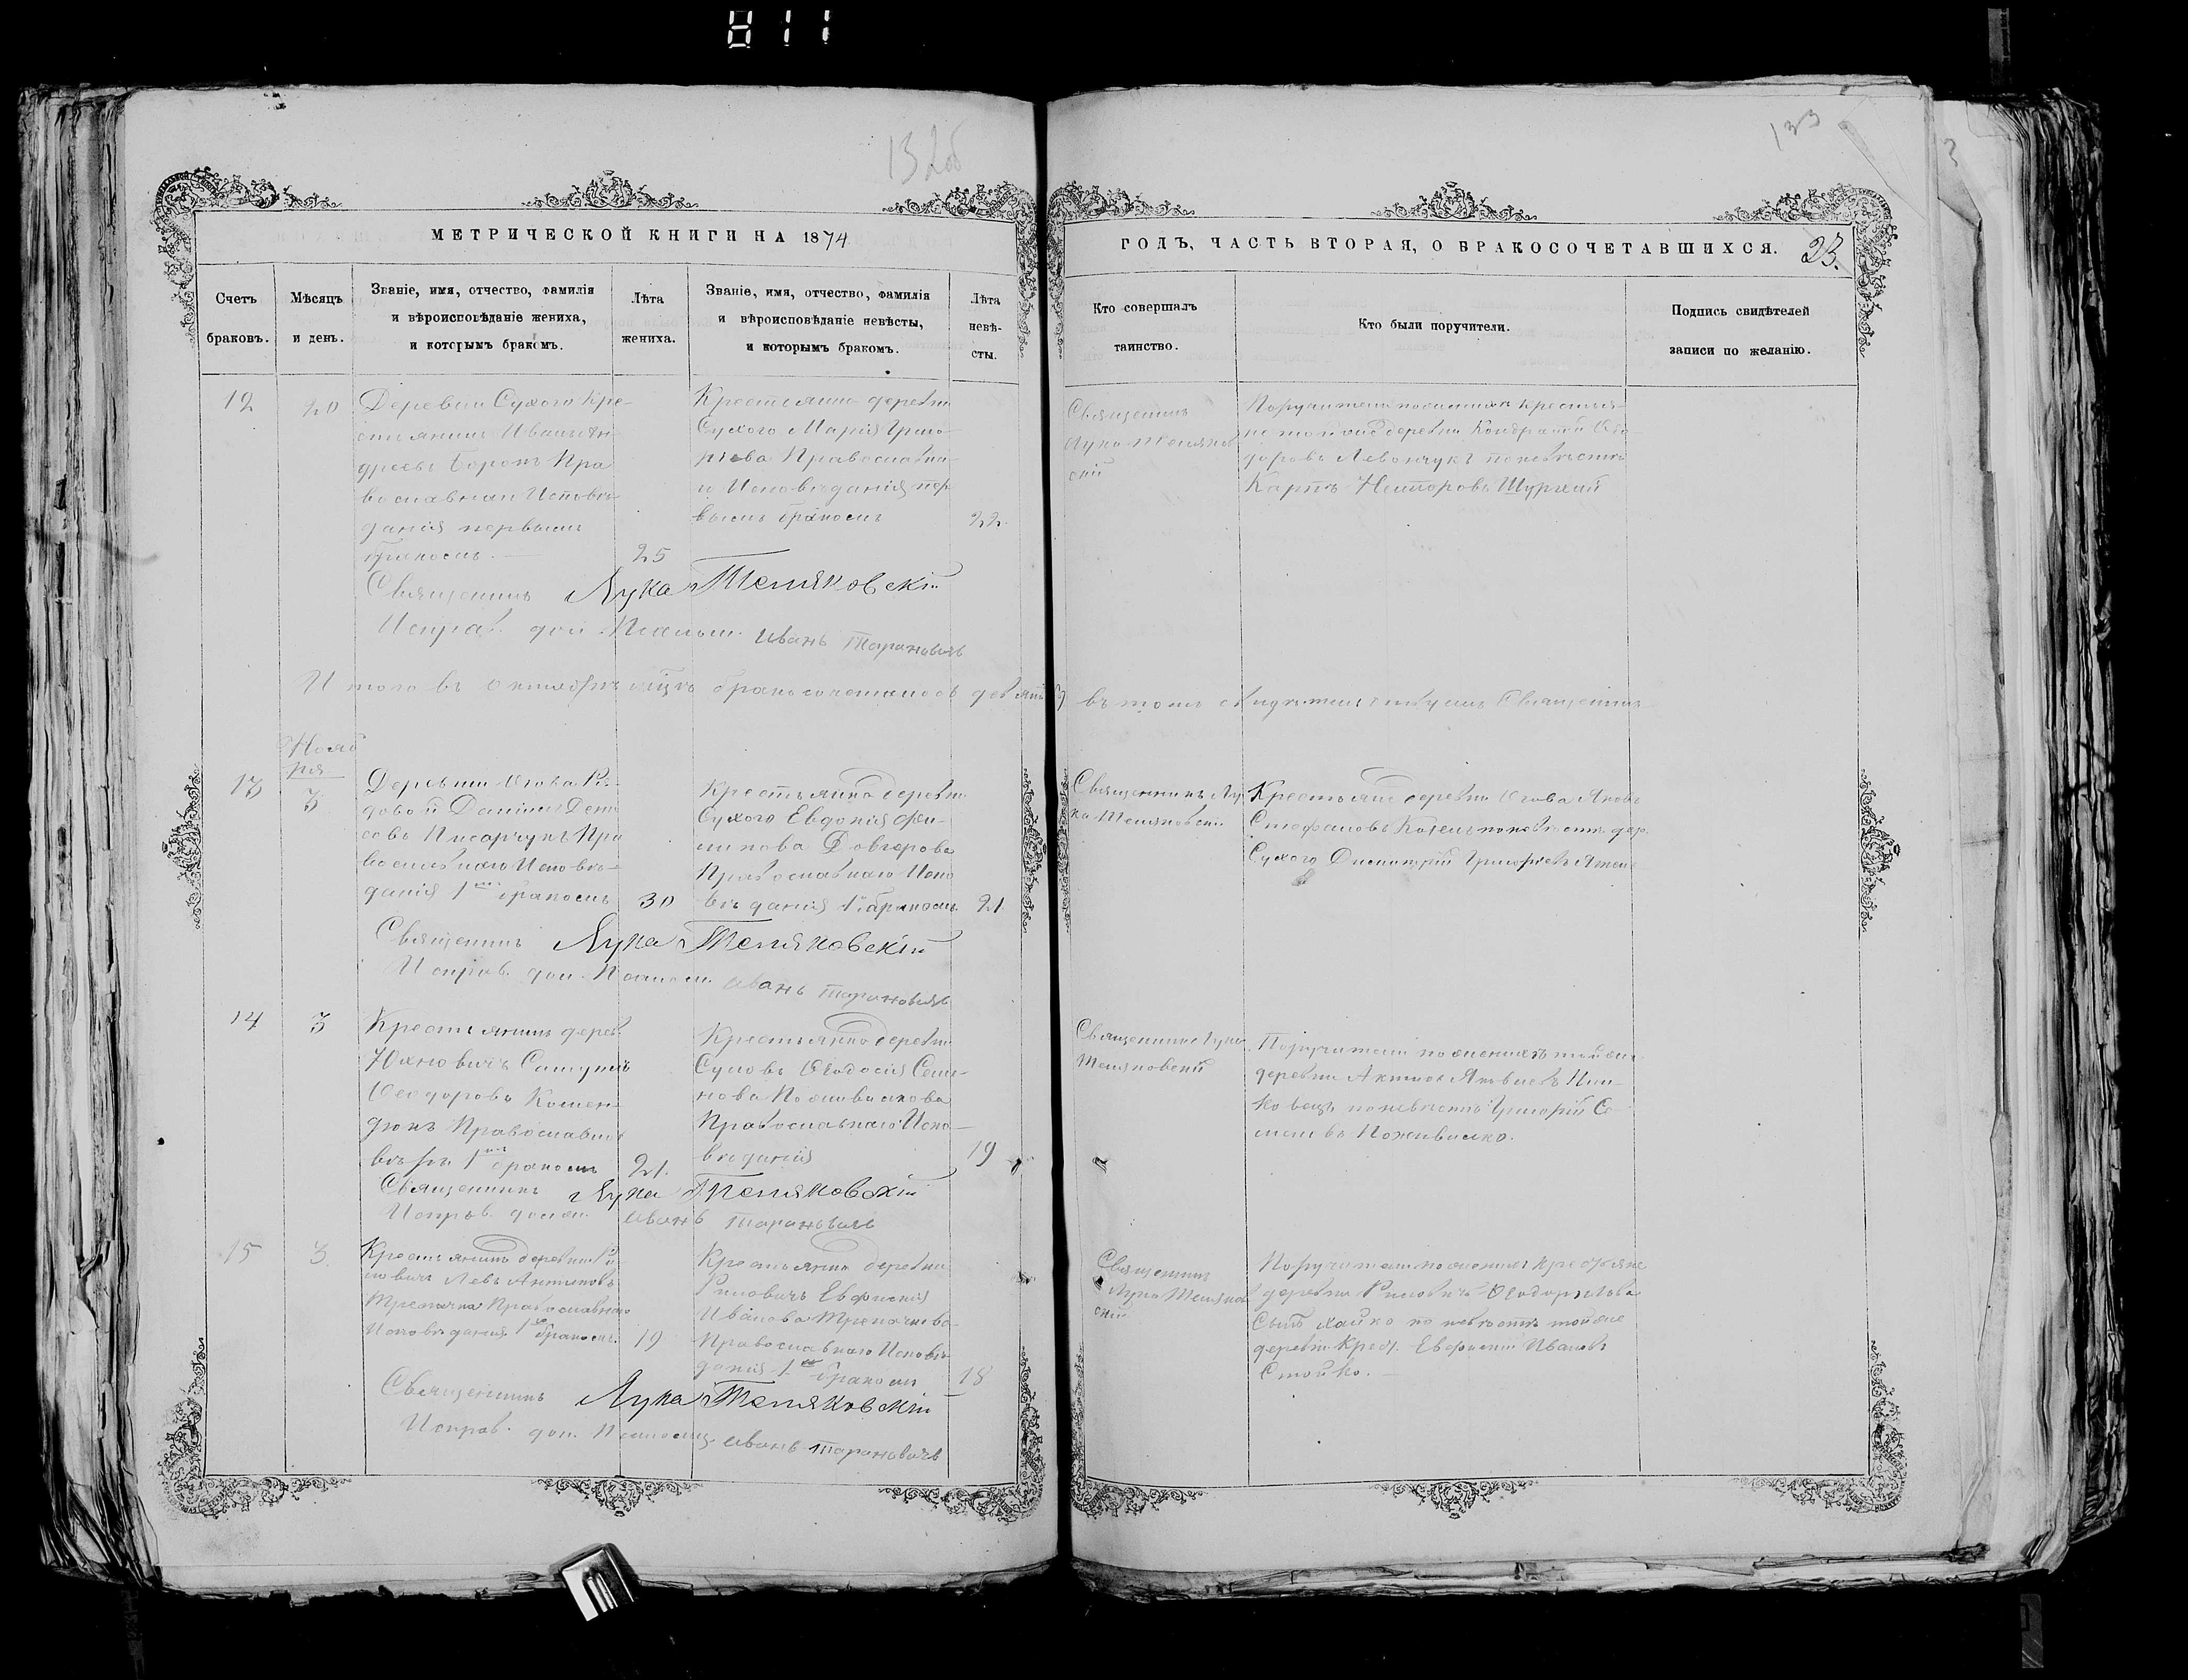 811
132об
133
МЕТРИЧЕСКОЙ КНИГИ НА 1874
ГОДЪ, ЧАСТЬ ВТОРАЯ, О БРАКОСОЧЕТАВШИХСЯ. 23.
Счетъ
браковъ.
Мѣсяцъ
и день.
Званіе, имя, отчество, фамилія
и вѣроисповѣданіе жениха,
и которымъ бракомъ.
Лѣта
жениха.
Званіе, имя, отчество, фамилія
и вѣроисповѣданіе невѣсты,
и которымъ бракомъ.
Лѣта
невѣ-
сты.
Кто совершалъ
таинство.
Кто были поручители.
Подпись свидѣтелей
записи по желанію.
12
20
Деревни Сухого Кре-
стьянинъ Иванъ Ан-
дреевъ Пра
вославнаго Исповѣ
данія первымъ
бракомъ.
25
Крестьянка деревни
Сухого Марія Григо-
рьева Православна-
го Исповѣданія пер
вымъ бракомъ
22.
Священникъ
Лука Теляков
скій
Поручители по женихѣ крестья-
не той же деревни Кондратій Ѳео
доровъ Левончукъ по невѣстѣ
Карпъ
Священникъ Лука Теляковскій
Исправ. дол. Псалом. Иванъ Тарановичъ
Итого въ октябрѣ мцѣ бракосочеталось девять 9 въ томъ свидѣтельствуемъ Священникъ
Нояб
ря
13
3
Деревни Огова Ря-
довой Даніилъ Дени
совъ Писарчукъ Пра
вославнаго Исповѣ-
данія 1мъ бракомъ
30
Крестьянка деревни
Сухого Евдокія Фи-
липова Довгерова
Православнаго Испо
вѣданія 1. бракомъ
21
Священникъ Лу
ка Теляковскій
Крестьяне деревни Огова Яковъ
Стефановъ Козелъ по невѣстѣ дер.
Сухого Димитрій Григорьевъ
Священникъ Лука Теляковскій
Исправ. дол. Псалом. Иванъ Тарановичъ
14
3
Крестьянинъ дерев
Юхновичъ Самуилъ
Ѳеодоровъ Комен-
дюкъ Православной
вѣры 1мъ бракомъ
21.
Крестьянка деревни
Ѳеодосія Семе-
нова Поживилкова
Православнаго Испо-
вѣданія
19
Священникъ Лука
Теляковскій
Поручители по женихѣ той же
деревни
по невѣстѣ Григорій Се-
меновъ Поживилко.
Священникъ Лука Теляковскій
Исправ. должн. Иванъ Тарановичъ
15
3.
Крестьянинъ деревни Ри
ловичъ Левъ Антиповъ
Трепачка Православнаго
Исповѣданія 1мъ бракомъ.
19
Крестьянка деревни
Риловичъ Евфимія
Иванова Трепачкова
Православнаго Исповѣ-
данія 1мъ бракомъ
18
Священникъ
Лука Теляков
скій
Поручители по женихѣ крестьяне
деревни Риловичъ Ѳеодоръ Львовъ
по невѣстѣ той же
деревни Крест. Евфимій Ивановъ
Стойко.
Священникъ Лука Теляковскій
Исправ. дол. Псаломщ. Иванъ Тарановичъ